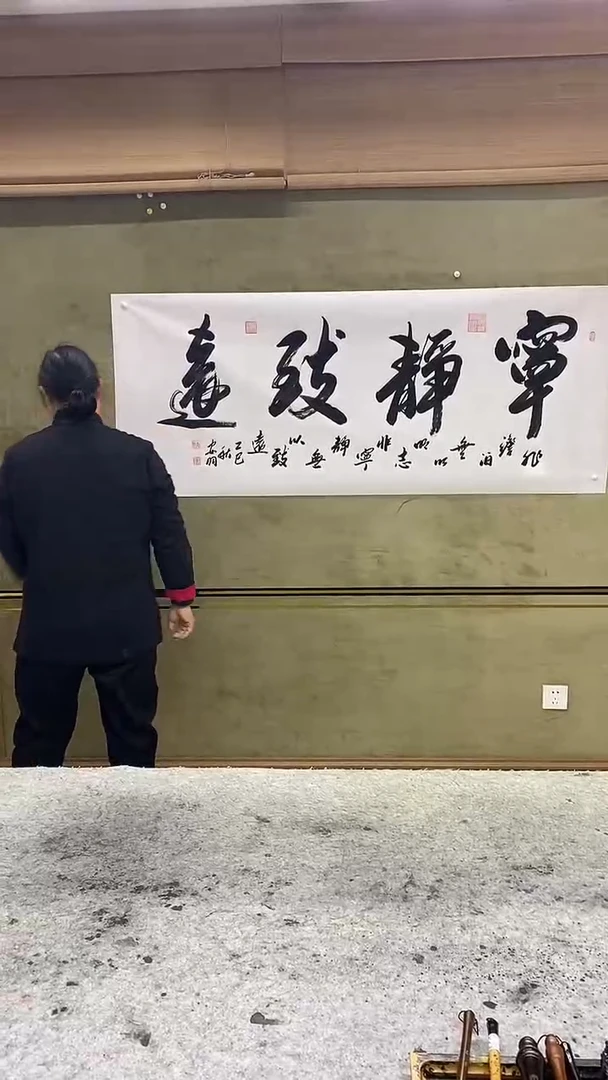 寧靜致遠
非澹泊無以明志非寧靜無以致遠
乙巳
秋